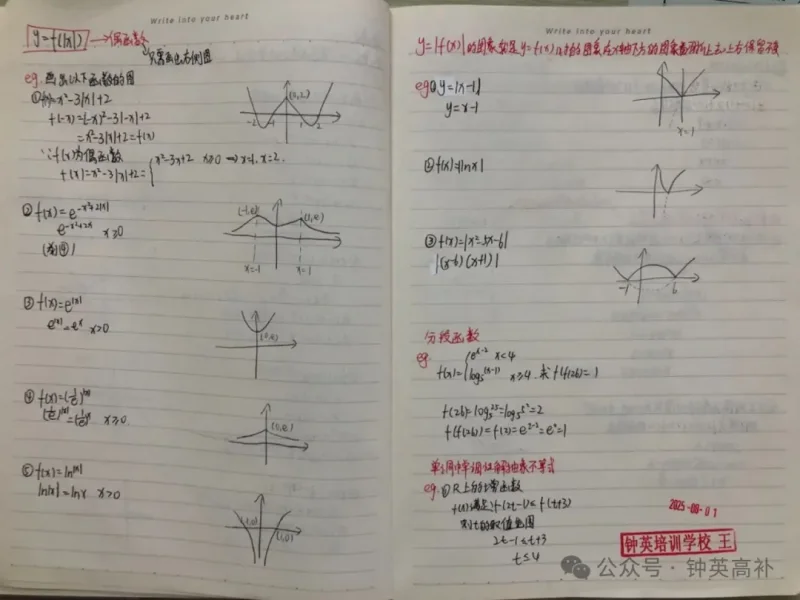 Write into your heart
y=f(|x|) → 偶函数
只需画出右侧图
eg. 画出以下函数的图
① f(x)=x²-3|x|+2
f(-x)=(-x)²-3|-x|+2
=x²-3|x|+2=f(x)
∴f(x)为偶函数
f(x)=x²-3|x|+2={x²-3x+2 x≥0 → x=1, x=2.
(0,2)
-2 -1 1 2
② f(x)=e^{-x²+2|x|}
e^{-x²+2x} x≥0
(-1,e) (1,e)
x=-1 x=1
③ f(x)=e^{|x|}
e^{|x|}=e^x x>0
④ f(x)=(1/e)^{|x|}
(1/e)^{|x|}=(1/e)^x x≥0
⑤ f(x)=ln|x|
ln|x|=lnx x>0
(-1,0) (1,0)
Write into your heart
y=|f(x)|的图象
eg① y=|x-1|
y=x-1
x=1
② f(x)=|lnx|
③ f(x)=|x²-5x-6|
|(x-6)(x+1)|
-1 6
分段函数
eg. f(x)={e^{x-2} x<4
log₅(x-1) x≥4 求f(f(26))=1
f(26)=log₅25=log₅5²=2
f(f(26))=f(2)=e^{2-2}=e⁰=1
eg. ① R上的增函数
f(x)满足f(2t-1)≤f(t+3)
求t的取值范围
2t-1≤t+3
t≤4
2025-08-01
钟英培训学校 王
公众号·钟英高补